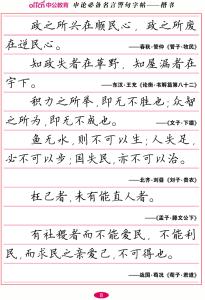 offcn中公教育 申论必备名言警句字帖——楷书
政之所兴在顺民心，政之所废
在逆民心。
——春秋·管仲《管子·牧民》
知政失者在草野，知屋漏者在
宇下。
——东汉·王充《论衡·书解篇第八十二》
积力之所举，即无不胜也；众智
之所为，即无不成也。
——《文子·下德》
鱼无水，则不可以生；人失足，
必不可以步；国失民，亦不可以治。
——北齐·刘昼《刘子·贵农》
枉己者，未有能直人者。
——《孟子·滕文公下》
有社稷者而不能爱民，不能利
民，而求民之亲爱己，不可得也。
——战国·荀况《荀子·君道》
8